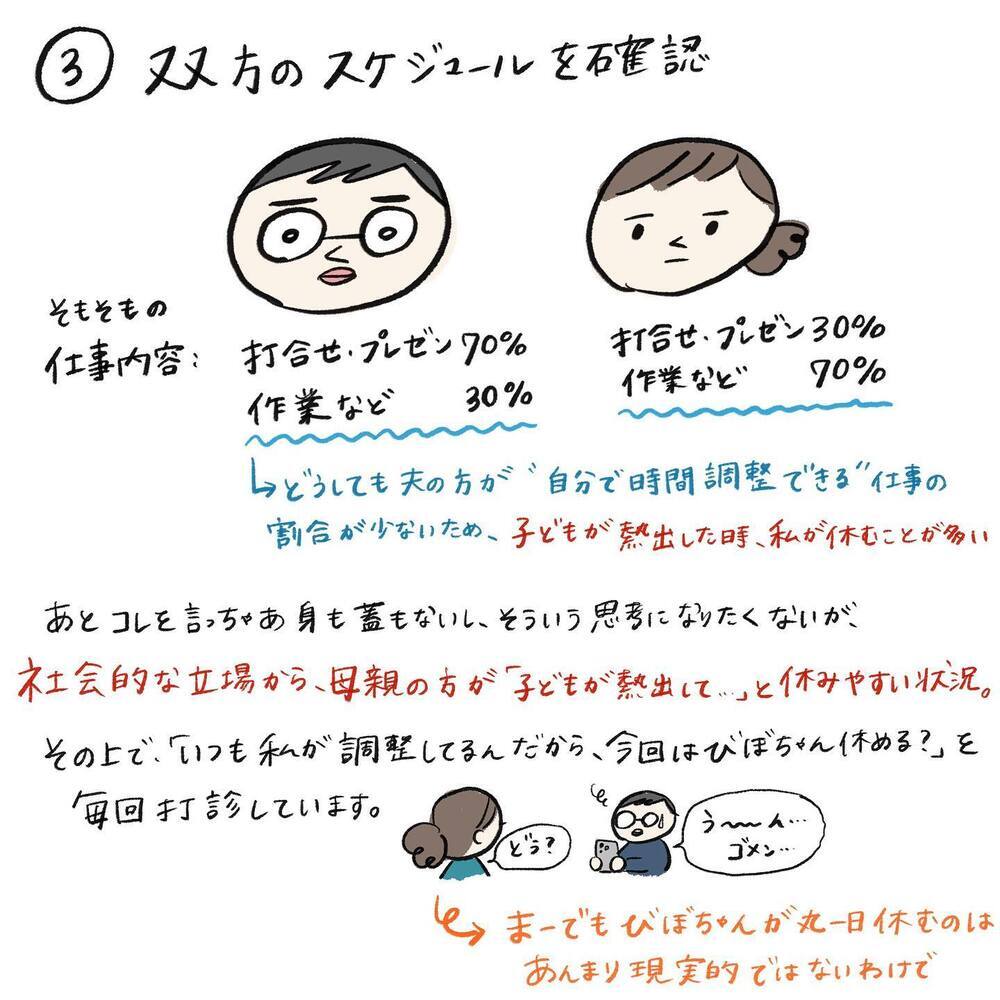 ③ 双方のスケジュールを確認
そもそもの
仕事内容:
打合せ・プレゼン70%
作業など 30%
打合せ・プレゼン30%
作業など 70%
↳どうしても夫の方が“自分で時間調整できる”仕事の
割合が少ないため、子どもが熱出した時、私が休むことが多い
あとコレを言っちゃあ身も蓋もないし、そういう思考になりたくないが、
社会的な立場から、母親の方が「子どもが熱出して…」と休みやすい状況。
その上で、「いつも私が調整してるんだから、今回はびぼちゃん休める?」を
毎回打診しています。
どう?
う〜〜ん…
ゴメン…
まーでもびぼちゃんが丸一日休むのは
あんまり現実的ではないわけで